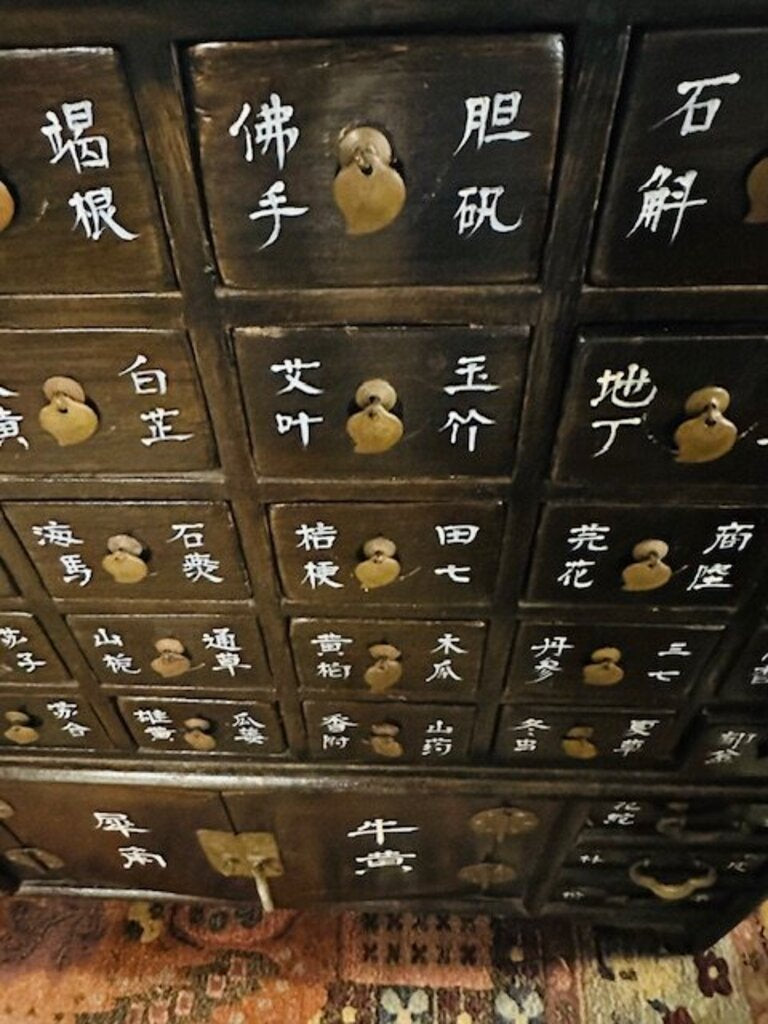 竭根 佛手 胆矾 石斛
白芷 艾叶 玉竹 地丁
海马 石燕 桔梗 田七 芫花 商陸
苏子 山栀 通草 黄柏 木瓜 丹参 三七
苏合 雄黄 瓜蒌 香附 山药 冬虫 夏草 郁金
犀角 牛黄 花蛇